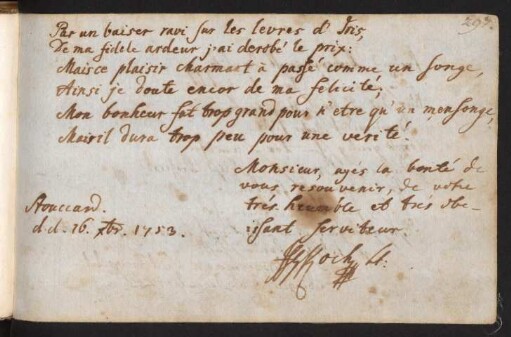 297.
Par un baiser ravi sur les levres d'Iris,
De ma fidele ardeur j'ai derobé le prix:
Mais ce plaisir charmant à passé comme un songe,
Ainsi je doute encor de ma felicité,
Mon bonheur fut trop grand pour n'etre qu'un mensonge,
Mais il dura trop peu pour une verité.
Monsieur, ayés la bonté de
vous resouvenir, de votre
trés heumble et trés obe-
issant serviteur
Koch
Stouccard.
d.d. 16. xbr. 1753.